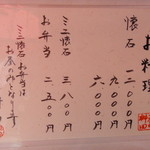 お料理
懐石
一二〇〇〇円
九〇〇〇円
六〇〇〇円
ミニ懐石 三八〇〇円
お弁当 二五〇〇円
ミニ懐石お弁当は
お昼のみとなります